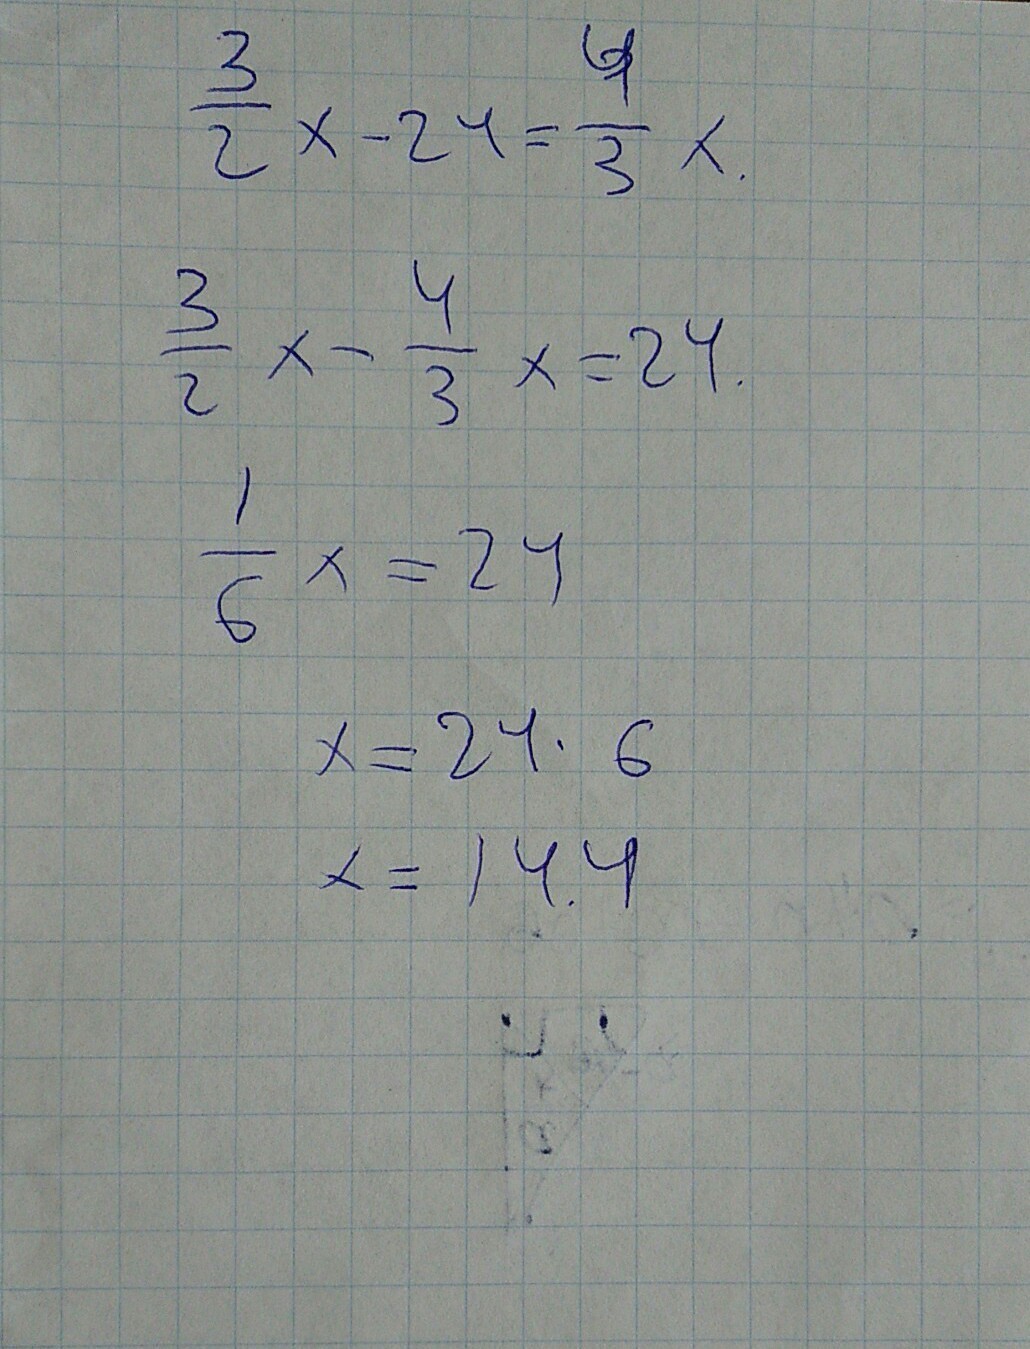 3/2 x - 24 = 4/3 x.
3/2 x - 4/3 x = 24.
1/6 x = 24
x = 24 · 6
x = 14.4